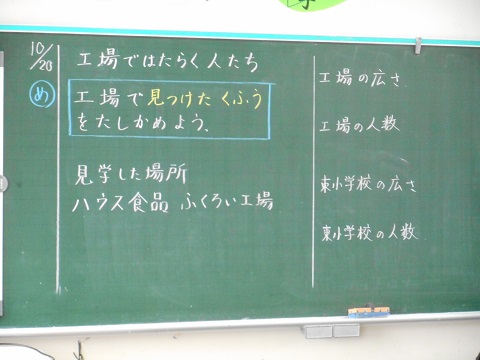 10/28
工場ではたらく人たち
め
工場で見つけたくふう
をたしかめよう。
見学した場所
ハウス食品 ふくろい工場
工場の広さ
工場の人数
東小学校の広さ
東小学校の人数